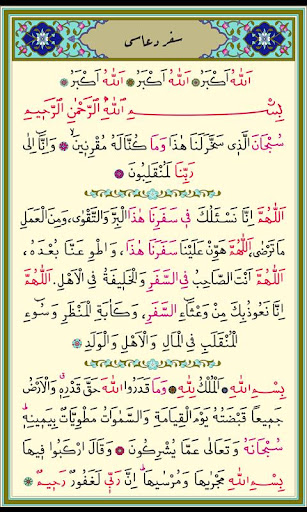 سفر دعاسی
اَللّٰهُ اَكْبَرُ ۞ اَللّٰهُ اَكْبَرُ ۞ اَللّٰهُ اَكْبَرُ ۞
بِسْمِ اللّٰهِ الرَّحْمٰنِ الرَّحِيمِ
سُبْحَانَ الَّذِى سَخَّرَلَنَا هٰذَا وَمَا كُنَّالَهُ مُقْرِنِينَ ۞ وَاِنَّا اِلٰى
رَبِّنَا لَمُنْقَلِبُونَ
اَللّٰهُمَّ اِنَّا نَسْئَلُكَ فِى سَفَرِنَا هٰذَا الْبِرَّ وَالتَّقْوٰى، وَمِنَ الْعَمَلِ
مَا تَرْضٰى، اَللّٰهُمَّ هَوِّنْ عَلَيْنَا سَفَرَنَا هٰذَا، وَاطْوِ عَنَّا بُعْدَهُ،
اَللّٰهُمَّ اَنْتَ الصَّاحِبُ فِى السَّفَرِ وَالْخَلِيفَةُ فِى الْاَهْلِ. اَللّٰهُمَّ
اِنَّا نَعُوذُبِكَ مِنْ وَعْثَاءِ السَّفَرِ، وَكَاٰبَةِ الْمَنْظَرِ وَسُوءِ
الْمُنْقَلَبِ فِى الْمَالِ وَالْاَهْلِ وَالْوَلَدِ ۞
بِسْمِ اللّٰهِ ۞ اَلْمُلْكُ لِلّٰهِ ۞ وَمَا قَدَرُوا اللّٰهَ حَقَّ قَدْرِهِ ۞ وَالْاَرْضُ
جَمِيعًا قَبْضَتُهُ يَوْمَ الْقِيَامَةِ وَالسَّمٰوَاتُ مَطْوِيَّاتٌ بِيَمِينِهِ
سُبْحَانَهُ وَتَعَالٰى عَمَّا يُشْرِكُونَ ۞ وَقَالَ ارْكَبُوا فِيهَا
بِسْمِ اللّٰهِ مَجْرٰيهَا وَمُرْسٰيهَا اِنَّ رَبِّى لَغَفُورٌ رَحِيمٌ ۞